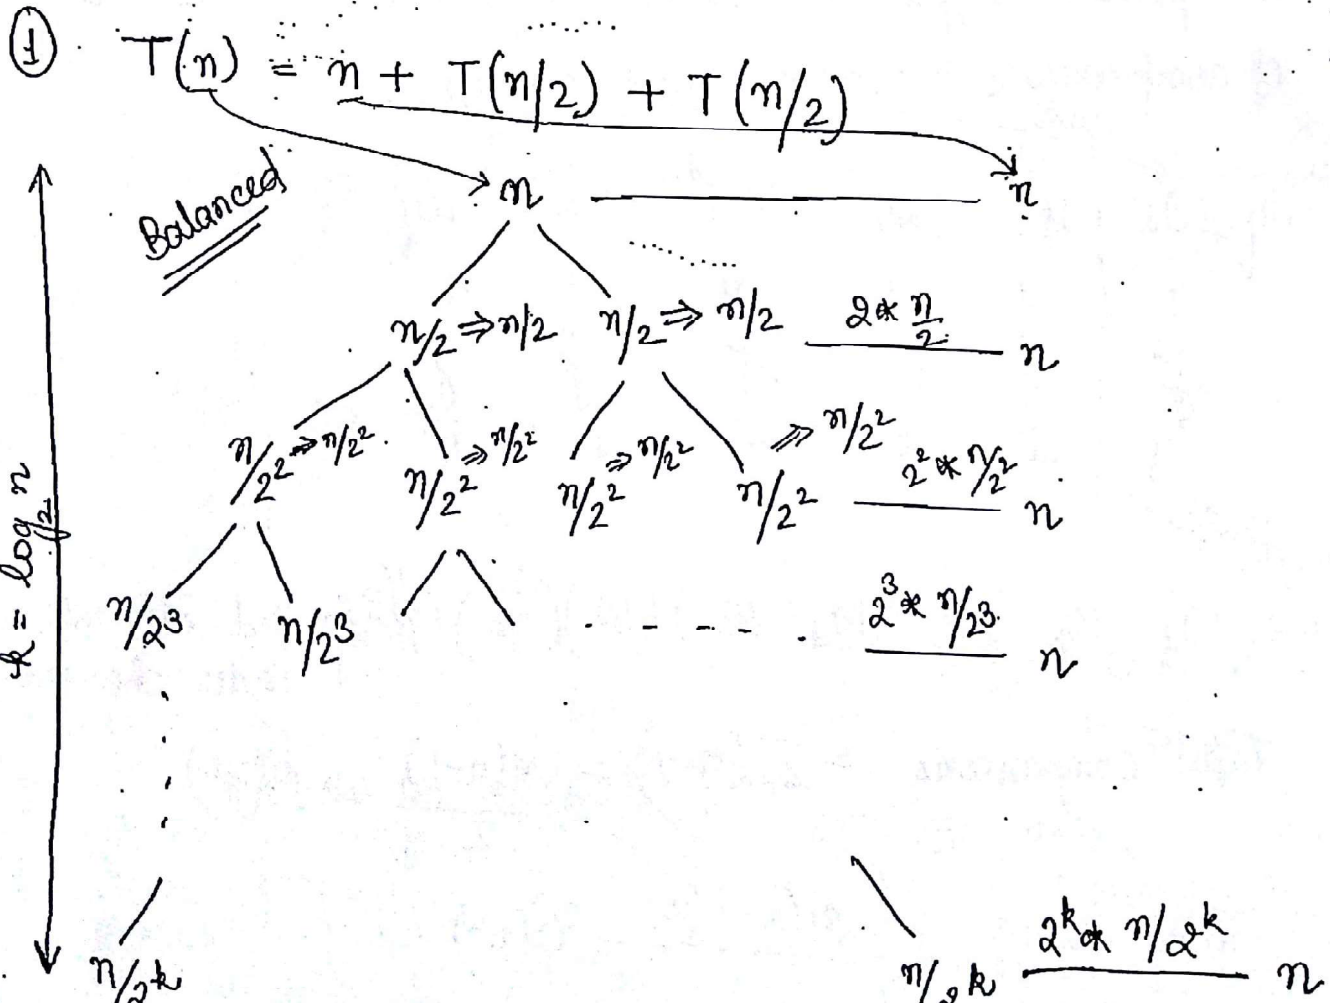 ① T(n) = n + T(n/2) + T(n/2)
Balanced
n n
n/2 ⇒ n/2 n/2 ⇒ n/2 2 * n/2 n
n/2² ⇒ n/2² n/2² ⇒ n/2² n/2² ⇒ n/2² n/2² ⇒ n/2² 2² * n/2² n
n/2³ n/2³ - - - - - 2³ * n/2³ n
k = log₂n
n/2ᵏ n/2ᵏ 2ᵏ * n/2ᵏ n